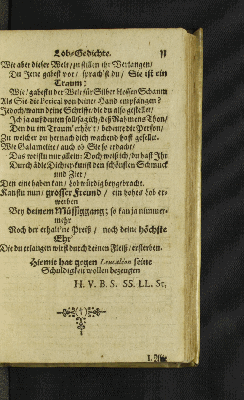 Lob-Gedichte.
Wie aber dieser Welt / zu stillen ihr Verlangen /
Du Jene gabest vor / sprach'st du / Sie ist ein
Traum:
Wie / gabestu der Welt für Silber blossen Schaum
Als Sie die Perical von deiner Hand empfangen?
Jedoch / wann deine Schrifft / die du also gestellet /
Ich ja auf deuten soll
Traum / deß Nahmens Thon /
Den du im Traum' erhör't / bedeute die Person /
Zu welcher du hernach dich wachend hast gesellt.
Wie Galamelite / auch ob Sie so erdacht /
Das weistu nur allein: Doch weiß ich / du hast Ihr
Durch däble Dichter-kunst den schönsten Schmuck
und Zier /
Den eine haben kan / höb würdig beygebracht.
Kanstu nun / grosser Freund / ein hohes Lob er-
werben
Bey deinem Müssiggang; so kan ja nimmer-
mehr
Noch der erhalt'ne Preiß / noch deine höchste
Ehr
Die du erlangen wirst durch deinen Fleiß / ersterben.
Hiemit hat gegen Leucalion seine
Schuldigkeit wollen bezeugen
H. V. B. S. SS. LL. St.